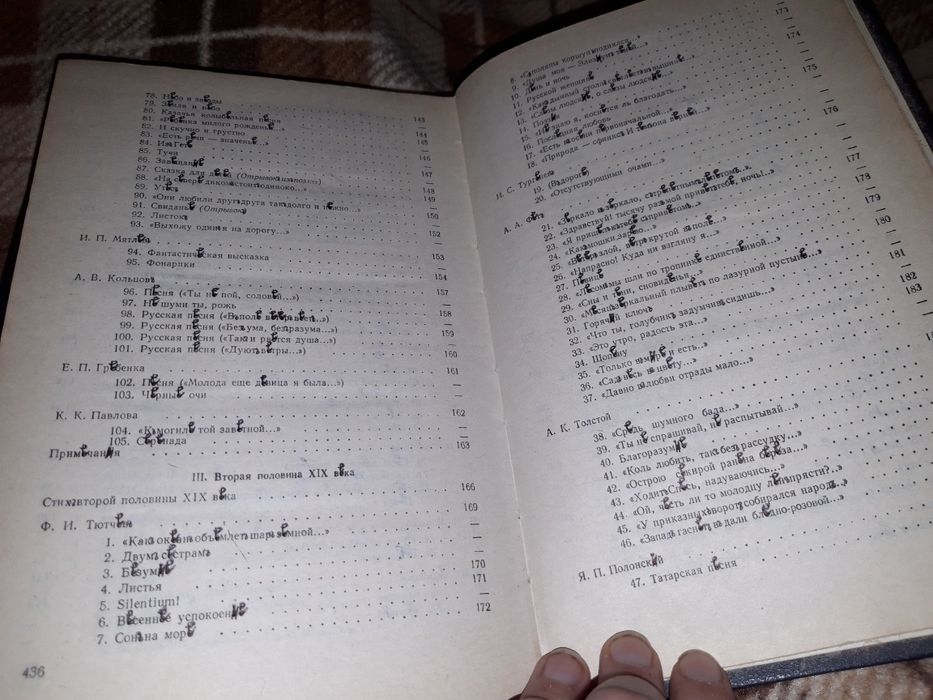 78. Небо и звезды
79. Земля и небо
80. Казачья колыбельная песня 143
81. «Ребенка милого рожденье...» —
82. И скучно и грустно 144
83. «Есть речи — значенье...» 145
84. Из Гете —
85. Тучи 146
86. Завещание —
87. Сказка для детей (Отрывок из поэмы) 147
88. «На севере диком стоит одиноко...» —
89. Утес 148
90. «Они любили друг друга так долго и нежно...» —
91. Свиданье (Отрывок) —
92. Листок 150
93. «Выхожу один я на дорогу...» 152
И. П. Мятлев
94. Фантастическая высказка 153
95. Фонарики —
А. В. Кольцов 154
96. Песня («Ты не пой, соловей...») 157
97. Не шуми ты, рожь —
98. Русская песня («В поле ветер веет...») 158
99. Русская песня («Без ума, без разума...») —
100. Русская песня («Так и рвется душа...») 159
101. Русская песня («Дуют ветры...») —
Е. П. Гребенка 160
102. Песня («Молода еще девица я была...») 161
103. Черные очи —
К. К. Павлова —
104. «К могиле той заветной...» 162
105. Серенада —
Примечания 163
III. Вторая половина XIX века
Стих второй половины XIX века 166
Ф. И. Тютчев 169
1. «Как океан объемлет шар земной...» —
2. Двум сестрам —
3. Безумие 170
4. Листья 171
5. Silentium! —
6. Весеннее успокоение 172
7. Сон на море
436
8. «С поляны коршун поднялся...» 173
9. «Душа моя — Элизиум теней...» —
10. День и ночь —
11. Русской женщине 174
12. «Как дымный столп светлеет в вышине!..» —
13. «Слезы людские, о слезы людские...» —
14. Поэзия 175
15. «Не знаю я, коснется ль благодать...» —
16. Последняя любовь —
17. «Есть в осени первоначальной...» —
18. «Природа — сфинкс. И тем она верней...» 176
И. С. Тургенев —
19. (В дороге) —
20. «Отсутствующими очами...» 177
А. А. Фет —
21. «Зеркало в зеркало, с трепетным лепетом...» 178
22. «Здравствуй! тысячу раз мой привет тебе, ночь!..»
23. «Я пришел к тебе с приветом...» 179
24. «Как мошки зарею...» —
25. «Ветер злой, ветр крутой в поле...» 180
26. «Напрасно! Куда ни взгляну я...» —
27. Певице —
28. «Лесом мы шли по тропинке единственной...» 181
29. «Сны и тени, сновиденья...» —
30. «Месяц зеркальный плывет по лазурной пустыне...» 182
31. Горячий ключ 183
32. «Что ты, голубчик, задумчив сидишь...» —
33. «Это утро, радость эта...»
34. Шопену
35. «Только в мире и есть...»
36. «Сад весь в цвету...»
37. «Давно в любви отрады мало...»
А. К. Толстой
38. «Средь шумного бала...»
39. «Ты не спрашивай, не распытывай...»
40. Благоразумие
41. «Коль любить, так без рассудку...»
42. «Острою секирой ранена береза...»
43. «Ходит Спесь, надуваючись...»
44. «Ой, честь ли то молодцу лен прясти?..»
45. «У приказных ворот собирался народ...»
46. «Запад гаснет в дали бледно-розовой...»
Я. П. Полонский
47. Татарская песня